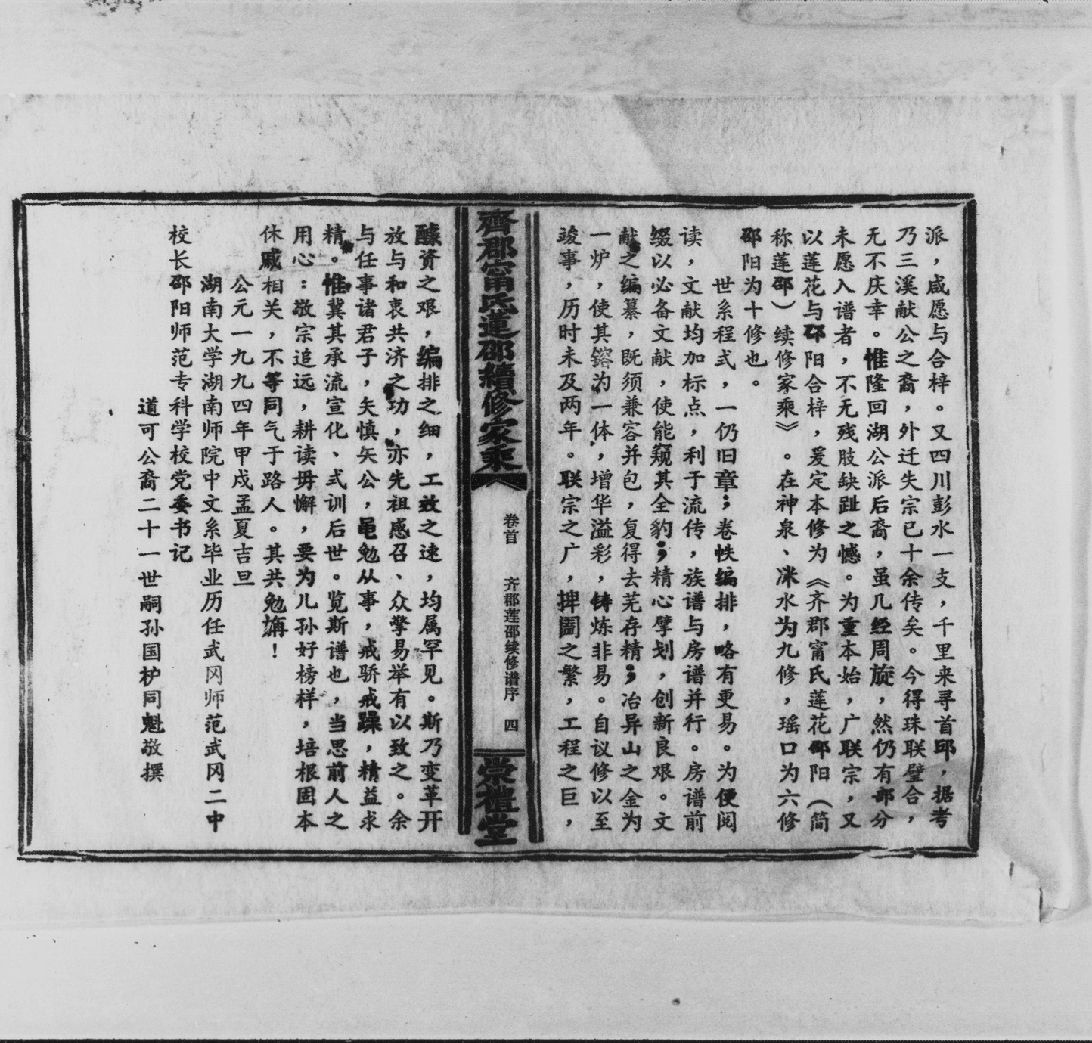 派，咸愿与合梓。又四川彭水一支，千里来寻首邱，据考
乃三溪献公之裔，外迁失宗已十余传矣。今得珠联璧合，
无不庆幸。惟隆回湖公派后裔，虽几经周旋，然仍有部分
未愿入谱者，不无残肢缺趾之憾。为重本始，广联宗，又
以莲花与邵阳合梓，爰定本修为《齐郡甯氏莲花邵阳（简
称莲邵）续修家乘》。在神泉、洣水为九修，瑶口为六修
邵阳为十修也。
世系程式，一仍旧章；卷帙编排，略有更易。为便阅
读，文献均加标点，利于流传，族谱与房谱并行。房谱前
缀以必备文献，使能窥其全豹；精心擘划，创新良艰。文
献之编纂，既须兼容并包，复得去芜存精；冶异山之金为
一炉，使其镕为一体，增华溢彩，铸炼非易。自议修以至
竣事，历时未及两年。联宗之广，捭阖之繁，工程之巨，
齊郡甯氏蓮邵續修家乘
卷首 齐郡莲邵续修谱序 四
崇禮堂
醵资之艰，编排之细，工效之速，均属罕见。斯乃变革开
放与和衷共济之功，亦先祖感召、众擎易举有以致之。余
与任事诸君子，矢慎矢公，黾勉从事，戒骄戒躁，精益求
精。惟冀其承流宣化、式训后世。览斯谱也，当思前人之
用心：敬宗追远，耕读毋懈，要为儿孙好榜样，培根固本
休戚相关，不等同气于路人。其共勉旃！
公元一九九四年甲戌孟夏吉旦
湖南大学湖南师院中文系毕业历任武冈师范武冈二中
校长邵阳师范专科学校党委书记
道可公裔二十一世嗣孙国栌同魁敬撰